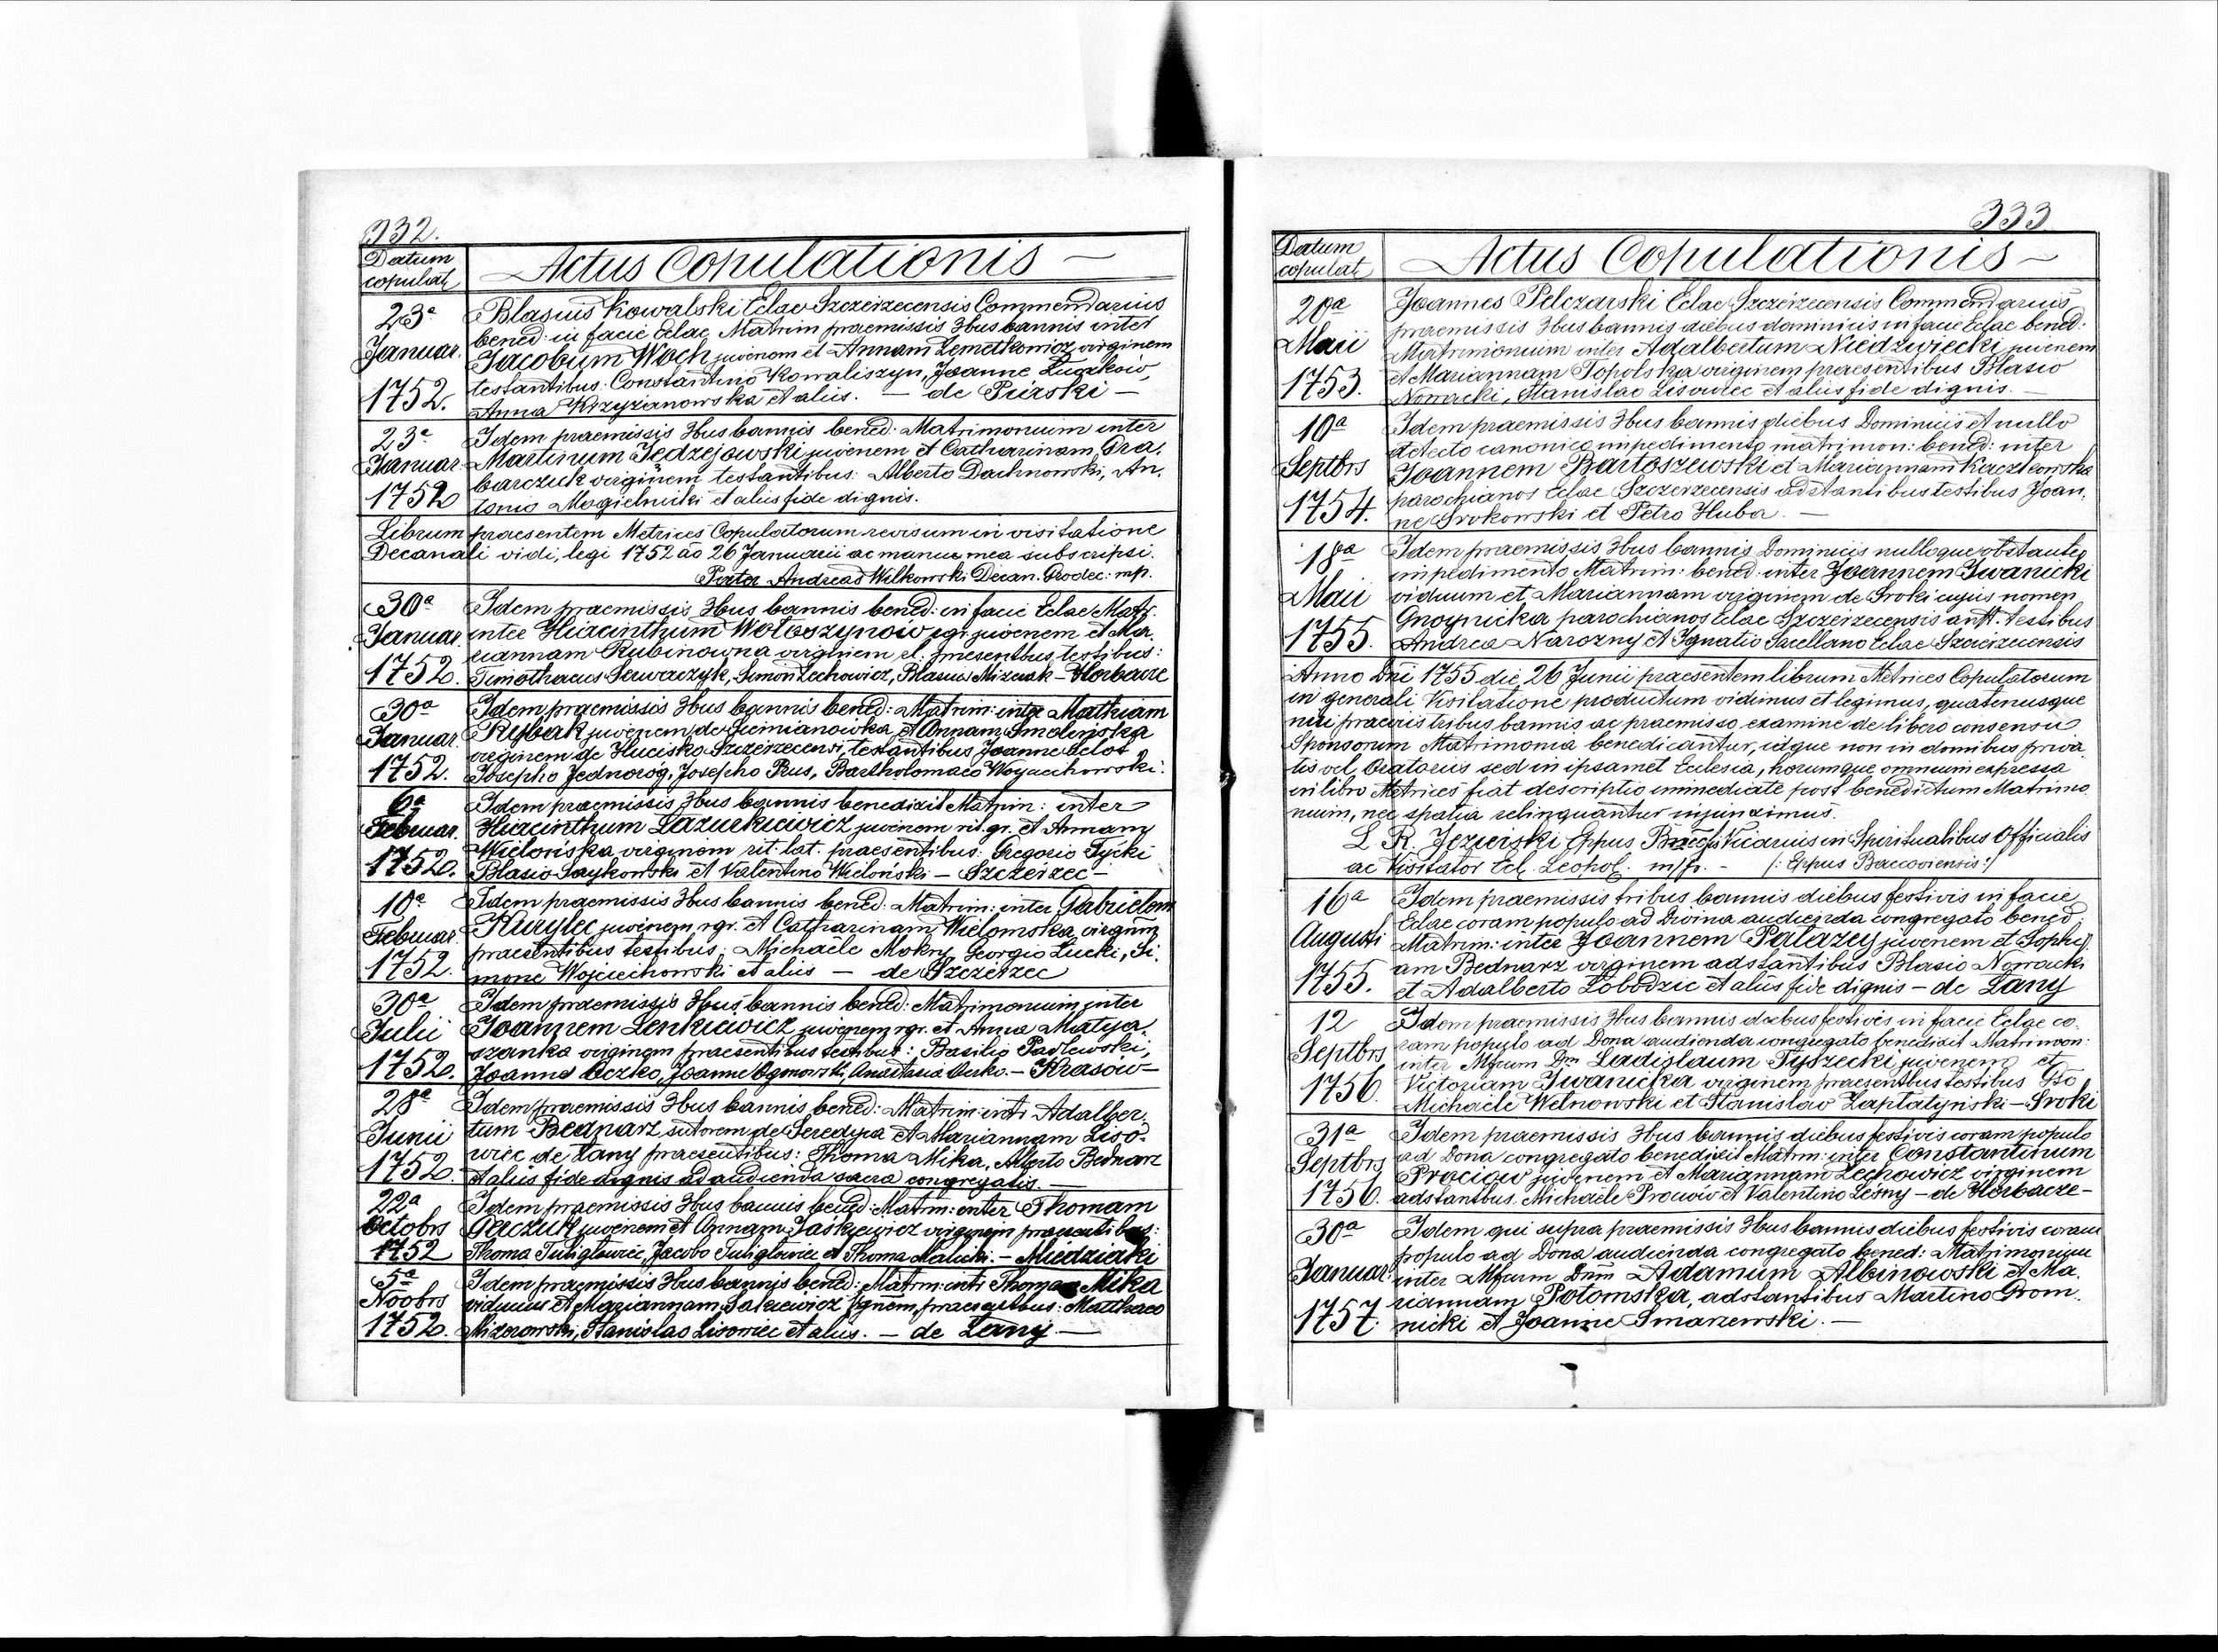 332.
Datum
copulat
Actus Copulationis —
23a
Januar.
1752.
Blasius Kowalski Eclae Szczerzecensis Commendarius
bened: in facie Eclae Matrim praemissis 3bus bannis inter
Jacobum Woch juvenem et Annam Zemetkowicz virginem
testantibus: Constantino Kowaliszyn, Joanne
Anna Krzyżanowska et aliis. — de Piérski —
23a
Januar.
1752
Idem praemissis 3bus bannis bened: Matrimonium inter
Martinum Jedzejowski juvenem et Catharinam Gra-
barczuk virginem testantibus: Alberto Dachnowski, An-
tonio Mogielnicki et aliis fide dignis.
Librum praesentem Metrices Copulatorum revisum in visitatione
Decanali vidi, legi 1752 ao 26 Januarii ac manu mea subscripsi.
Pater Andreas Wilkowski Decan. Grodec: mp.
30a
Januar.
1752.
Idem praemissis 3bus bannis bened: in facie Eclae Matr.
inter Hiacinthum Wołoszynow rgr. juvenem et Ma-
riannam Rubinowna virginem rl. praesentbus testibus:
Timothaeus Serwaczyk, Simon Lechowicz, Blasius Mizerak — Horbacze
30a
Januar.
1752.
Idem praemissis 3bus bannis bened: Matrim: inter Mathiam
Rybak juvenem de Siemianowka et Annam Smolenska
virginem de Hucisko Szczerzecensi, testantibus Joanne
Josepho Jednoróg, Josepho Prus, Bartholomaeo Woyciechowski.
6a
Februar.
1752.
Idem praemissis 3bus bannis benedixit Matrim: inter
Hiacinthum Lazurkiewicz juvenem rit. gr. et Annam
Wielońska virginem rit: lat. praesentibus: Gregorio Sycki
Blasio Saykowski et Valentino Wieloński — Szczerzec —
10a
Februar.
1752.
Idem praemissis 3bus bannis bened: Matrim: inter Gabrielem
Kurylec juvenem, rgr. et Catharinam Wielomska, virginem
praesentibus testibus: Michaele Mokry, Georgio Lucki, Si-
mone Wojciechowski et aliis — de Szczérzec
30a
Julii
1752.
Idem praemissis 3bus bannis bened: Matrimonium inter
Joannem Lenkiewicz juvenem rgr. et Anna Matya-
szanka virginem praesentibus testibus: Basilio Padlewski,
Joanne Oczko, Joanne Ogonowski, Anastasia Oczko. — Krasow —
28a
Junii
1752.
Idem praemissis 3bus bannis bened: Matrim: inti Adalber-
tum Bednarz, sutorem de Seredyna et Mariannam Liso-
wiec de Łany praesentibus: Thoma Mika, Alberto Bednarz
et aliis fide dignis ad audienda sacra congregatis. —
22a
Octobrs
1752
Idem praemissis 3bus bannis bened: Matrm: inter Thomam
Gerczuk juvenem et Annam Jaśkiewicz virginem praesentibus:
Thoma Tuligłowiec, Jacobo Tuligłowiec et Thoma Malicki. — Miedziaki
5a
Noobrs
1752.
Idem praemissis 3bus bannis bened: Matrm: inti Thomam Mika
viduum et Mariannam Sakiewicz Vgnem, praesentbus: Matthaeo
Mizerowski, Stanislao Lisowiec et aliis. — de Łany —
333
Datum
copulat
Actus Copulationis —
28a
Maii
1753.
Joannes Pelczarski Eclae Szczerzecensis Commendarius
praemissis 3bus bannis diebus dominicis in facie Eclae bened:
Matrimonium inter Adalbertum Niedzwiecki juvenem
et Mariannam Topolska virginem praesentibus Blasio
Nowacki, Stanislao Lisowiec et aliis fide dignis. —
10a
Septbrs
1754.
Idem praemissis 3bus bannis diebus Dominicis et nullo
detecto canonico impedimento matrimon: bened: inter
Joannem Bartoszewski et Mariannam
parochianos Eclae Szczerzecensis adstantibus testibus Joan-
ne Srokowski et Petro Huba. —
18a
Maii
1755.
Idem praemissis 3bus bannis Dominicis nulloque obstante
impedimento Matrim: bened: inter Joannem Iwanicki
viduum et Mariannam virginem de Sroki cujus nomen
Gnoynicka parochianos Eclae Szczerzecensis antt. testibus
Andrea Narozny et Ignatio Sacellano Eclae Szczerzecensis
Anno Dni 1755 die 26 Junii praesentem librum Metrices Copulatorum
in generali Visitatione productum vidimus et legimus, quatenusque
nisi praeviis tribus bannis ac praemisso examine de libero consensu
Sponsorum Matrimonia benedicantur, idque non in domibus priva-
tis vel Oratoriis sed in ipsamet Ecclesia, horumque omnium expressa
in libro Metrices fiat descriptio immediate post benedictum Matrimo-
nium, nec spatia relinquantur injunximus.
L. R. Jezierski Eppus Vicarius in Spiritualibus Officialis
ac Visitator Ecl. Leopol. m/p. — /: Eppus Baccoviensis :/
16a
Augusti
1755.
Idem praemissis tribus bannis diebus festivis in facie
Eclae coram populo ad Divina audienda congregato bened:
Matrim: inter Joannem Palazey juvenem et Sophi-
am Bednarz virginem adstantibus Blasio Nowacki
et Adalberto Łobodzic et aliis fide dignis — de Łany
12
Septbrs
1756.
Idem praemissis 3bus bannis diebus festivis in facie Eclae co-
ram populo ad Dona audienda congregato benedixit Matrimon:
inter Mfcum Dm Ladislaum Tyszecki juvenem et
Victoriam Iwanicka virginem praesentbus testibus Gso
Michaele Welnowski et Stanislao Zaplatyński — Sroki
31a
Septbrs
1756.
Idem praemissis 3bus bannis diebus festivis coram populo
ad Dona congregato benedixit Matrm: inter Constantinum
Prociow juvenem et Mariannam Lechowicz virginem
adstantbus. Michaele Prociow et Valentino Leśny — de Horbacze —
30a
Januar.
1757.
Idem qui supra praemissis 3bus bannis diebus festivis coram
populo ad Dona audienda congregato bened: Matrimonium
inter Mfcum Dnm Adamum Albinowski et Ma-
riannam Potomska, adstantibus Martino Grom-
nicki et Joanne Smarzewski. —